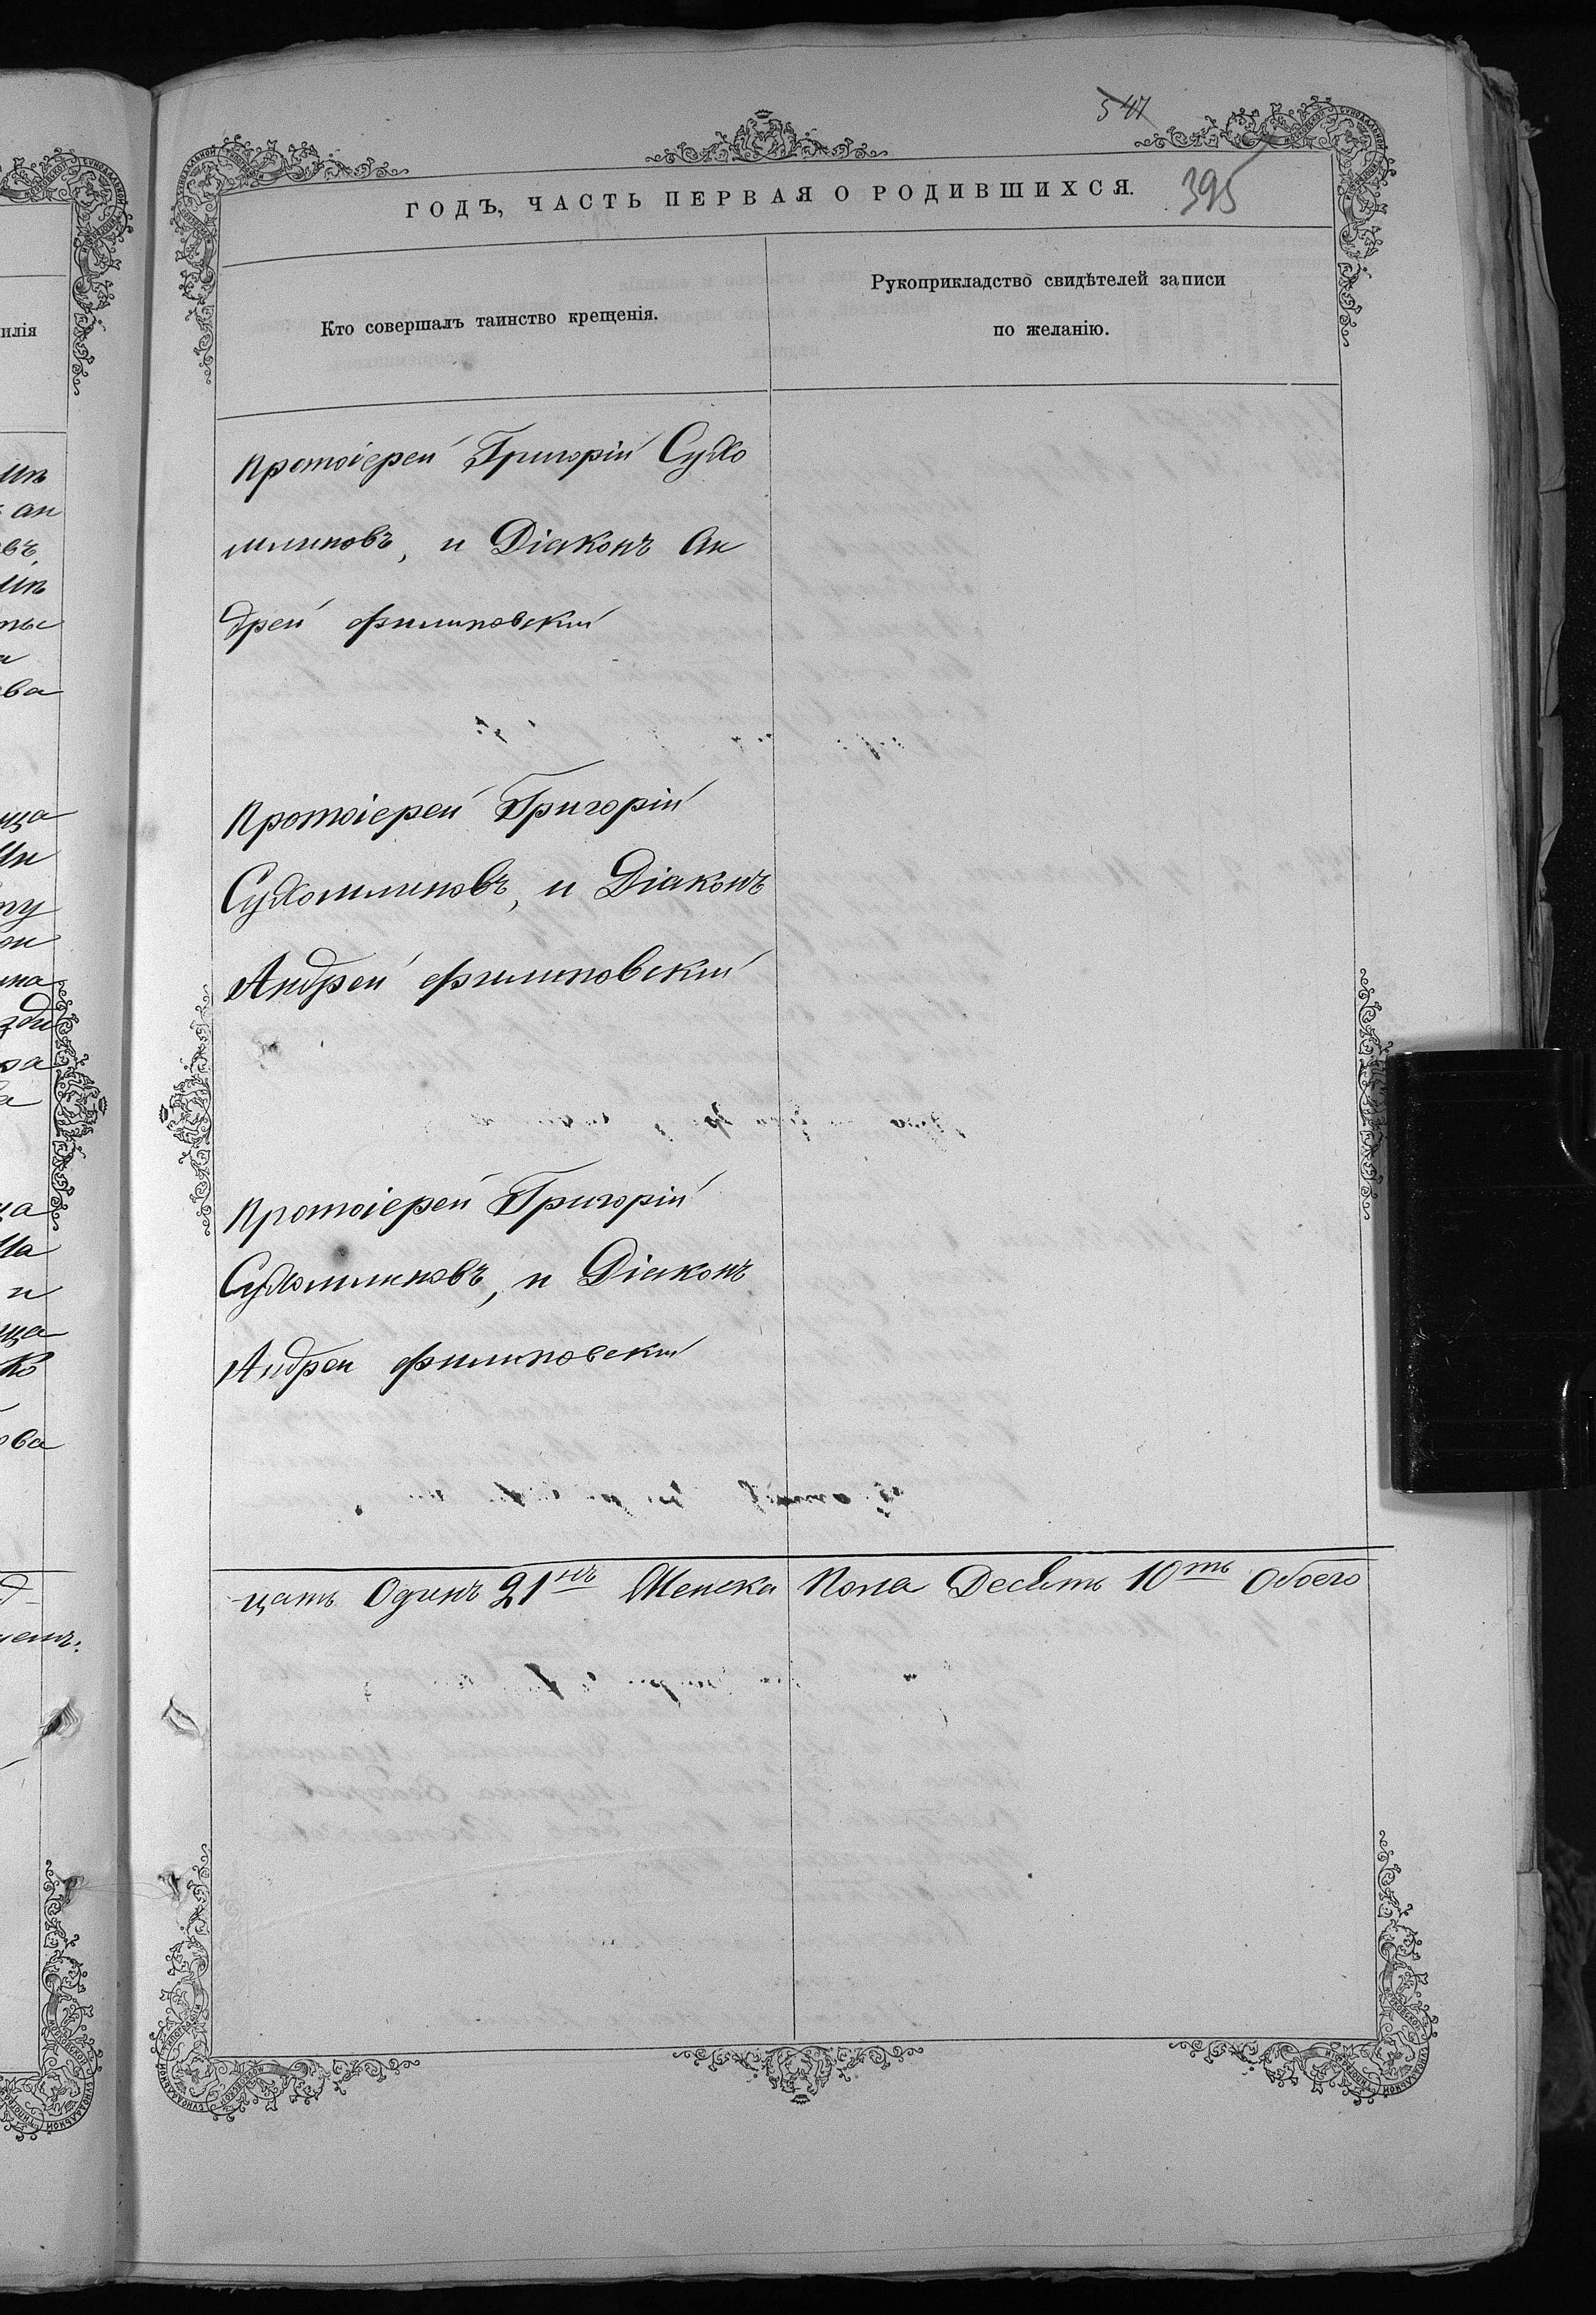 547
ГОДЪ, ЧАСТЬ ПЕРВАЯ О РОДИВШИХСЯ.
395
Кто совершалъ таинство крещенія.
Рукоприкладство свидѣтелей записи
по желанію.
илія
Протоіерей Григорій Сухо
млиновъ, и Діаконъ Ан
дрей Филиповскій
Протоіерей Григорій
Сухомлиновъ, и Діаконъ
Андрей Филиповскій
Протоіерей Григорій
Сухомлиновъ, и Діаконъ
Андрей Филиповскій
цать Одинъ 21нъ Женска Пола Десять 10ть Обоего